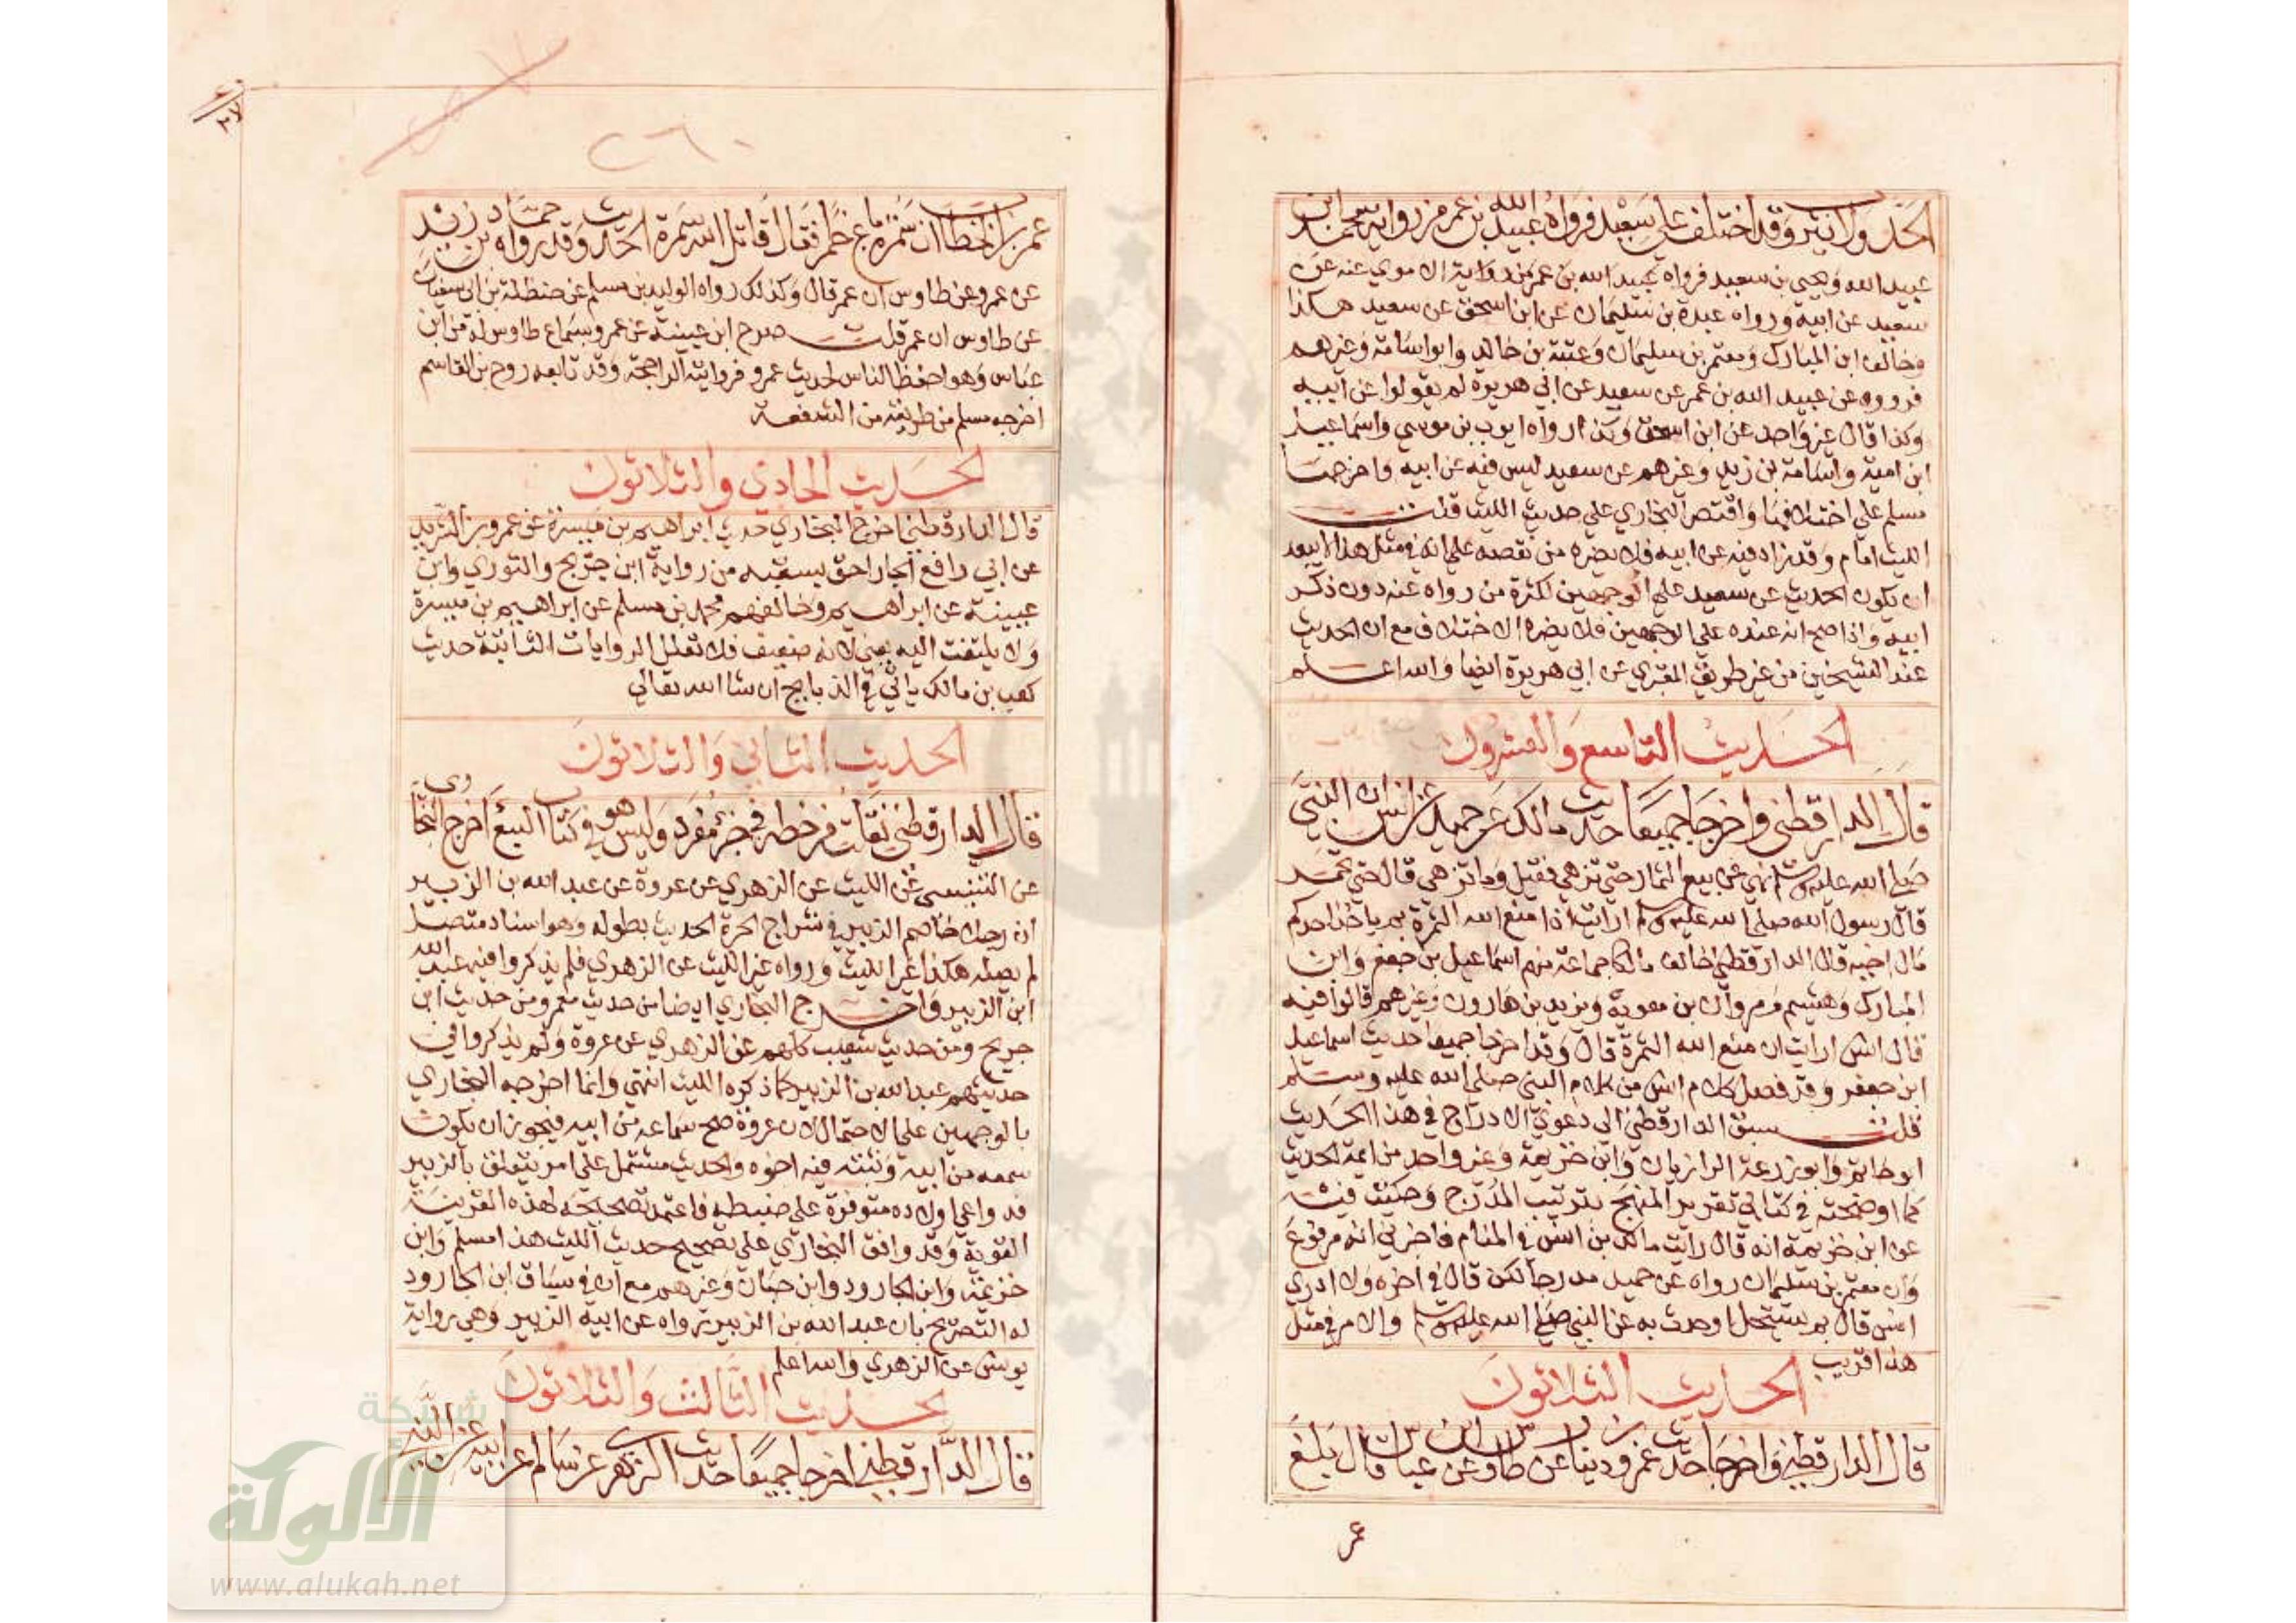 الحد ولا يثرب وقد اختلف على سعيد فرواه عبيد الله بن عمر من رواية محمد ابن
عبيد الله ويحيى بن سعيد فرواه عبيد الله بن عمر من رواية الاموي عنه عن
سعيد عن ابيه ورواه عبدة بن سليمان عن ابن اسحق عن سعيد هكذا
وخالف ابن المبارك ومعتمر بن سليمان وعقبة بن خالد وابواسامة وغيرهم
فرووه عن عبيد الله بن عمر عن سعيد عن ابي هريرة لم يقولوا عن ابيه
وكذا قال غير واحد عن ابن اسحق وكذا رواه ايوب بن موسي واسماعيل
ابن امية واسامة بن زيد وغيرهم عن سعيد ليس فيه عن ابيه واخرجه
مسلم علي اختلافها واقتصر البخاري علي حديث الليث قلت
الليث امام وقد زاد فيه عن ابيه فلا يضره من نقصه علي انه في مثل هذا لا يبعد
ان يكون الحديث عن سعيد علي الوجهين لكثرة من رواه عنه دون ذكر
ابيه واذا صح انه عنده علي الوجهين فلا يضره الاختلاف مع ان الحديث
عند الشيخين من غير طريق المقبري عن ابي هريرة ايضا والله اعلم
الحديث التاسع والعشرون
قال الدارقطني واخرجا جميعا حديث مالك عن حميد عن انس ان النبي
صلي الله عليه وسلم نهي عن بيع الثمار حتي تزهي فقيل وما تزهي قال حتي تحمر
قال رسول الله صلي الله عليه وسلم ارايت اذا منع الله الثمرة بم ياخذ احدكم
مال اخيه قال الدارقطني خالف مالكا جماعة منهم اسماعيل بن جعفر وابن
المبارك وهشيم ومروان بن معوية ويزيد بن هارون وغيرهم قالوا فيه
قال انس ارايت ان منع الله الثمرة قال وقد اخرجا جميعا حديث اسماعيل
ابن جعفر وقد فصل كلام انس من كلام النبي صلي الله عليه وسلم
قلت سبق الدارقطني الي دعوي الادراج في هذا الحديث
ابو حاتم وابو زرعة الرازيان وابن خزيمة وغير واحد من ايمة الحديث
كما اوضحته في كتابي تقريب المنهج بترتيب المدرج وحكيت فيه
عن ابن خزيمة انه قال رايت مالك بن انس في المنام فاخبرني انه مرفوع
وان معتمر بن سليمان رواه عن حميد مدرجا لكن قال في اخره ولا ادري
انس قال بم يستحل او حدث به عن النبي صلي الله عليه وسلم والامر في مثل
هذا قريب
الحديث الثلاثون
قال الدارقطني واخرجا حديث عمرو بن دينار عن طاوس عن ابن عباس قال بلغ
عمر
عمر بن الخطاب ان سمرة باع خمرا فقال قاتل الله سمرة الحديث وقد رواه حماد بن زيد
عن عمرو عن طاوس ان عمر قال وكذلك رواه الوليد بن مسلم عن حنظلة بن ابي سفيان
عن طاوس ان عمر قلت صرح ابن عيينة عن عمرو بسماع طاوس له من ابن
عباس وهو احفظ الناس لحديث عمرو فروايته الراجحة وقد تابعه روح بن القاسم
اخرجه مسلم من طريقه من الشفعة
الحديث الحادي والثلاثون
قال الدارقطني اخرج البخاري حديث ابراهيم بن ميسرة عن عمرو بن الشريد
عن ابي رافع الجار احق بسقبه من رواية ابن جريج والثوري وابن
عيينة عن ابراهيم وخالفهم محمد بن مسلم عن ابراهيم بن ميسرة
ولا يلتفت اليه يعني لانه ضعيف فلا تعلل الروايات الثابتة حديث
كعب بن مالك ياتي في الذبايح ان شا الله تعالي
الحديث الثاني والثلاثون
قال الدارقطني نقلت من خطه في جزء مفرد وليس هو في كتاب التتبع اخرج البخاري
عن التنيسي عن الليث عن الزهري عن عروة عن عبد الله بن الزبير
ان رجلا خاصم الزبير في شراج الحرة الحديث بطوله وهو اسناد متصل
لم يصله هكذا غير الليث ورواه غير الليث عن الزهري فلم يذكروا فيه عبد الله
ابن الزبير واخرج البخاري ايضا من حديث معمر ومن حديث ابن
جريج ومن حديث شعيب كلهم عن الزهري عن عروة ولم يذكروا في
حديثهم عبد الله بن الزبير كما ذكره الليث انتهي وانما اخرجه البخاري
بالوجهين علي الاحتمال لان عروة صح سماعه من ابيه فيجوز ان يكون
سمعه من ابيه وثبته فيه اخوه والحديث مشتمل علي امر يتعلق بالزبير
فدواعي اولاده متوفرة علي ضبطه فاعتمد تصحيحه لهذه القرينة
القوية وقد وافق البخاري علي تصحيح حديث الليث هذا مسلم وابن
خزيمة وابن الجارود وابن حبان وغيرهم مع ان في سياق ابن الجارود
له التصريح بان عبد الله بن الزبير رواه عن ابيه الزبير وهي رواية
يونس عن الزهري والله اعلم
الحديث الثالث والثلاثون
قال الدارقطني اخرجا جميعا حديث الزهري عن سالم عن ابيه عن النبي
٢٦٠
شبكة
الألوكة
www.alukah.net